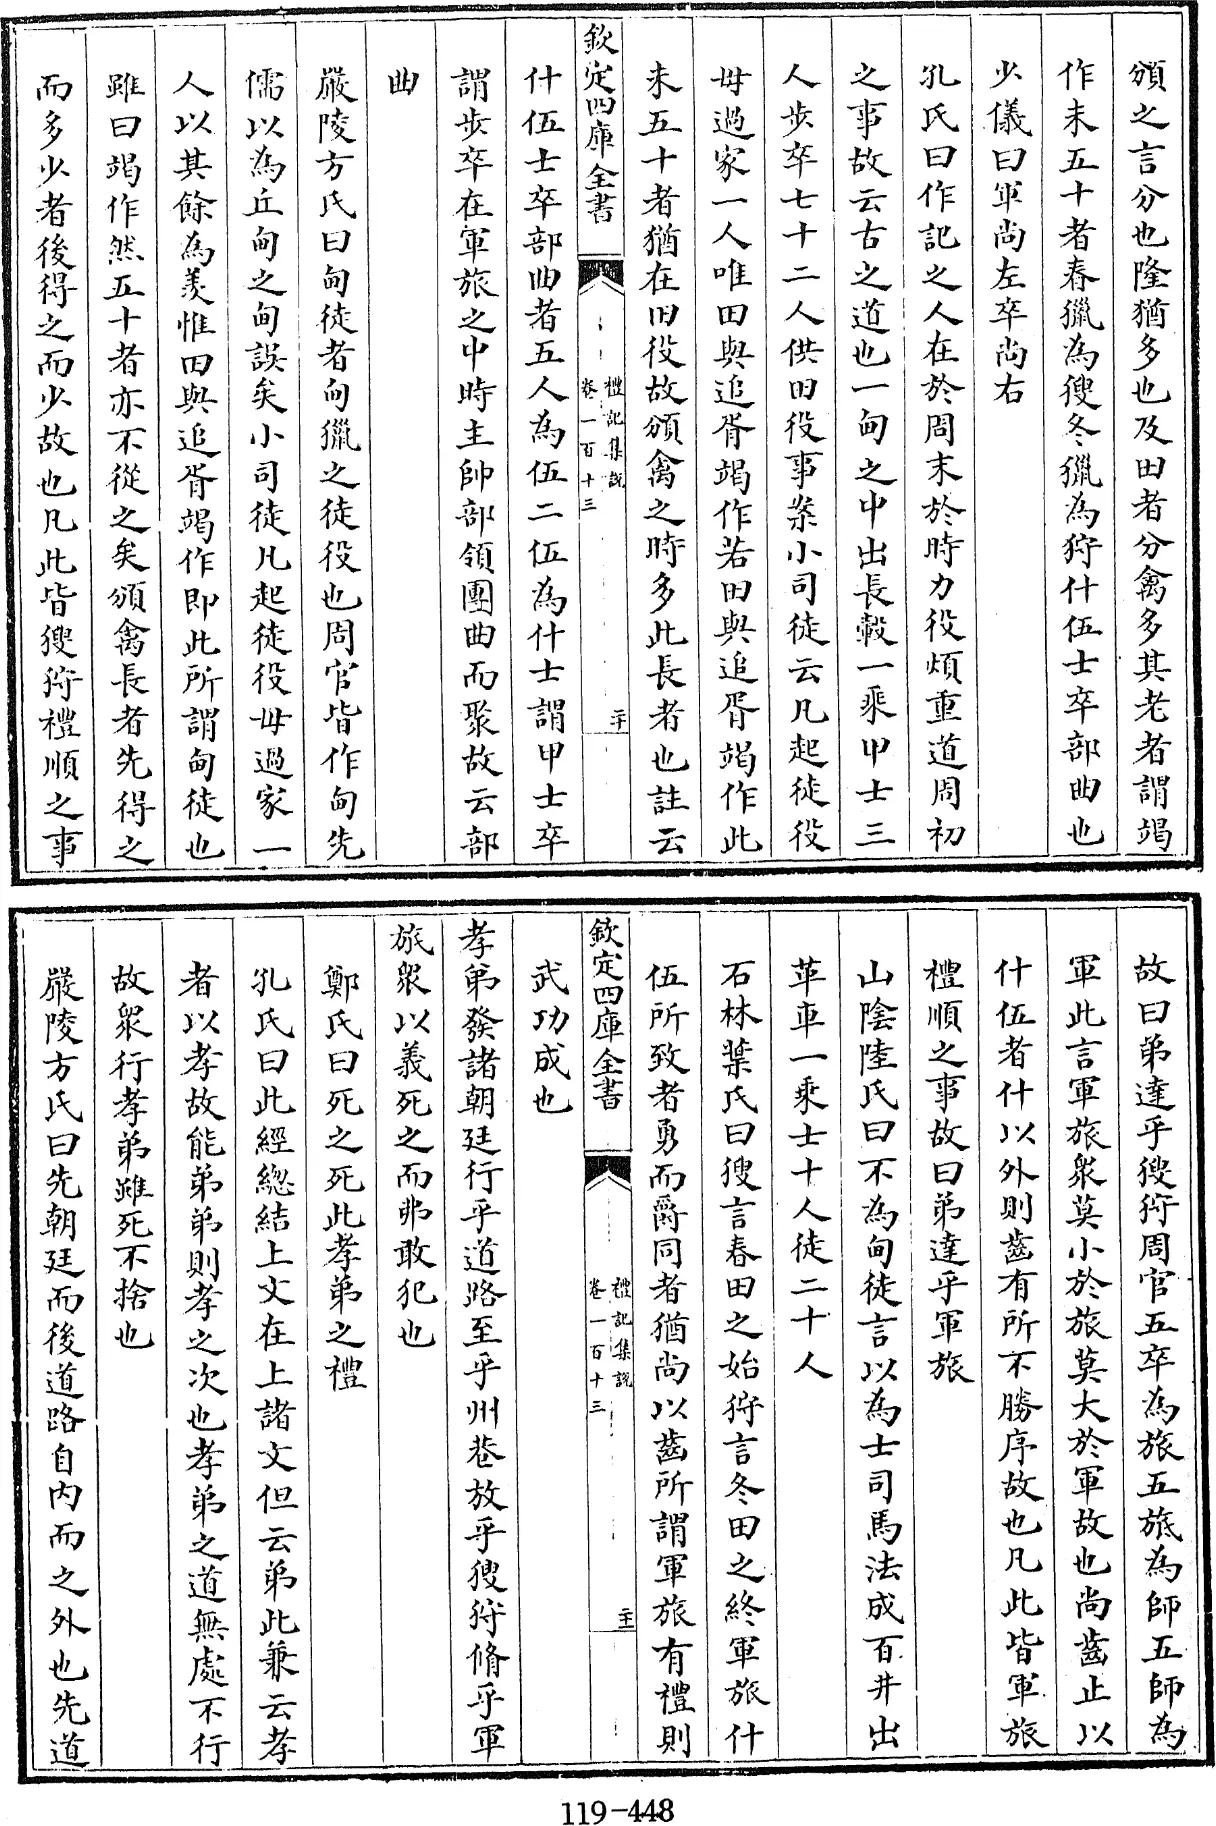 頒之言分也隆猶多也及田者分禽多其老者謂竭
作未五十者春獵為獀冬獵為狩什伍士卒部曲也
少儀曰軍尚左卒尚右
孔氏曰作記之人在於周末於時力役煩重道周初
之事故云古之道也一甸之中出長轂一乘甲士三
人步卒七十二人供田役事案小司徒云凡起徒役
毋過家一人唯田與追胥竭作若田與追胥竭作此
未五十者猶在田役故頒禽之時多此長者也註云
欽定四庫全書
禮記集說
卷一百十三
二十
什伍士卒部曲者五人為伍二伍為什士謂甲士卒
謂步卒在軍旅之中時主帥部領團曲而聚故云部
曲
嚴陵方氏曰甸徒者甸獵之徒役也周官皆作甸先
儒以為丘甸之甸誤矣小司徒凡起徒役毋過家一
人以其餘為羨惟田與追胥竭作即此所謂甸徒也
雖曰竭作然五十者亦不從之矣頒禽長者先得之
而多少者後得之而少故也凡此皆獀狩禮順之事
故曰弟達乎獀狩周官五卒為旅五旅為師五師為
軍此言軍旅衆莫小於旅莫大於軍故也尚齒止以
什伍者什以外則齒有所不勝序故也凡此皆軍旅
禮順之事故曰弟達乎軍旅
山陰陸氏曰不為甸徒言以為士司馬法成百井出
革車一乘士十人徒二十人
石林葉氏曰獀言春田之始狩言冬田之終軍旅什
伍所致者勇而爵同者猶尚以齒所謂軍旅有禮則
欽定四庫全書
禮記集說
卷一百十三
二十一
武功成也
孝弟發諸朝廷行乎道路至乎州巷放乎獀狩脩乎軍
旅衆以義死之而弗敢犯也
鄭氏曰死之死此孝弟之禮
孔氏曰此經總結上文在上諸文但云弟此兼云孝
者以孝故能弟弟則孝之次也孝弟之道無處不行
故衆行孝弟雖死不捨也
嚴陵方氏曰先朝廷而後道路自内而之外也先道
119-448